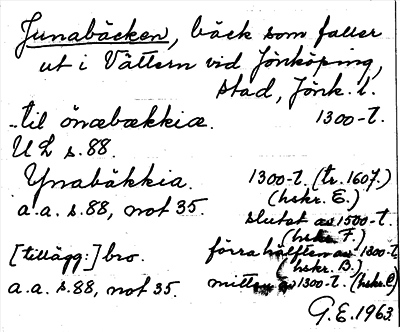 Junabäcken, bäck som faller
ut i Vättern vid Jönköping,
stad, Jönk. l.
..til önæbækkiæ. 1300-t.
UL s.88.
Ynabäkkia. 1300-t. (tr. 1607.)
(hskr. E.)
a.a. s.88, not 35. slutet av 1500-t.
(hskr. F.)
[tillägg:] bro. förra hälften av 1300-t.
(hskr. B.)
a.a. s.88, not 35. mitten av 1300-t. (hskr. C)
G.E. 1963.